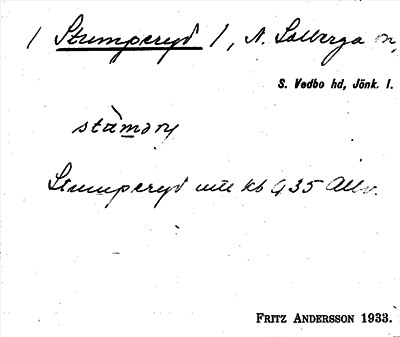 / Stumperyd /, N. Solberga sn,
S. Vedbo hd, Jönk. l.
stàməry
Stumperyd utk kb 935 Allv.
FRITZ ANDERSSON 1933.